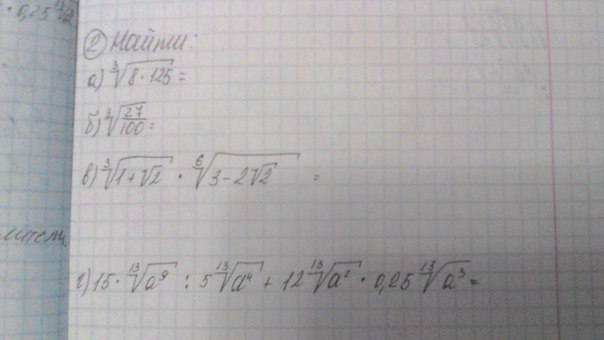 · 0,25 ¹³√a
② Найти:
а) ³√(8·125) =
б) ³√(27/100) =
в) ³√(1+√2) · ⁶√(3-2√2) =
г) 15· ¹³√a⁹ : 5 ¹³√a⁴ + 12 ¹³√a² · 0,25 ¹³√a³ =